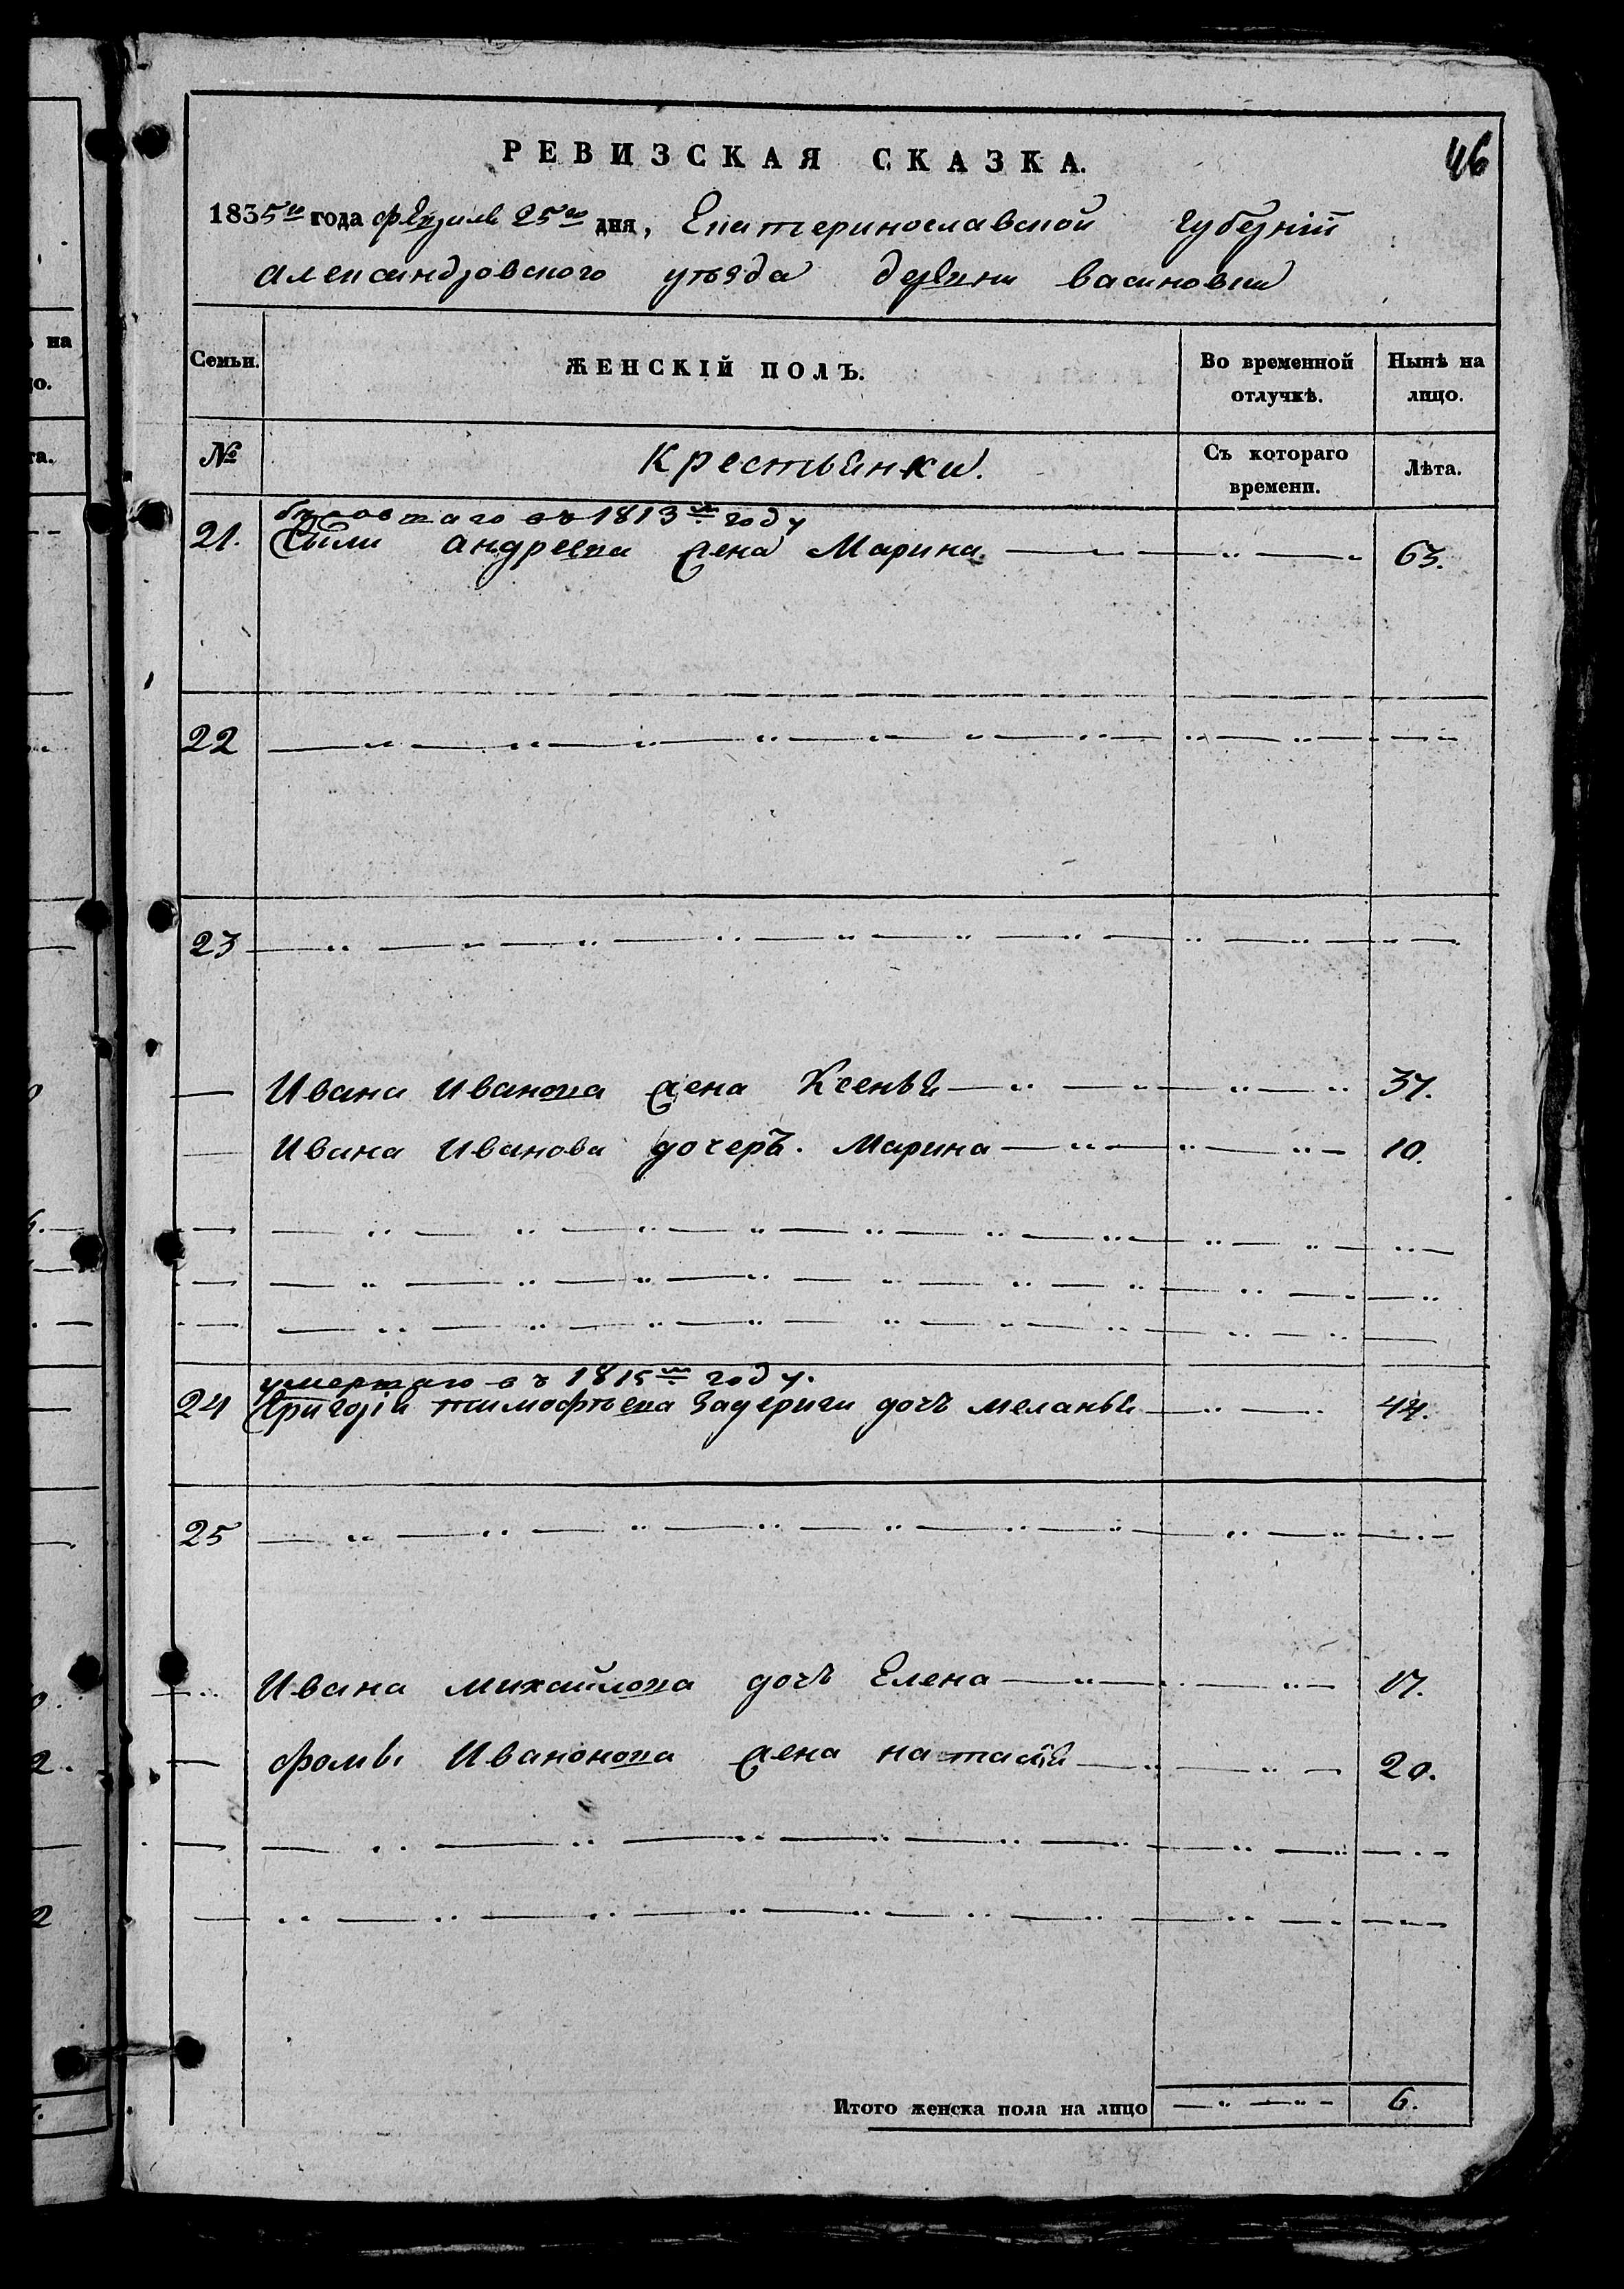 46
РЕВИЗСКАЯ СКАЗКА.
1835го года февраля 25го дня, Екатеринославской губерніи
александровского уѣзда деревни васиновки
Семьи. ЖЕНСКІЙ ПОЛЪ. Во временной отлучкѣ. Нынѣ на лицо.
№ Крестьянки. Съ котораго времени. Лѣта.
въ 1813м году
21. андреева жена Марина 63.
22
23
Ивана Иванова жена Ксенья 37.
Ивана Иванова дочерь. Марина 10.
умершаго въ 1815м году.
24 Григорія тимофѣева Задериги дочь меланья 44.
25
Ивана михайлова дочь Елена 17.
фомы жена настасья 20.
Итого женска пола на лицо 6.
на
о.
та.